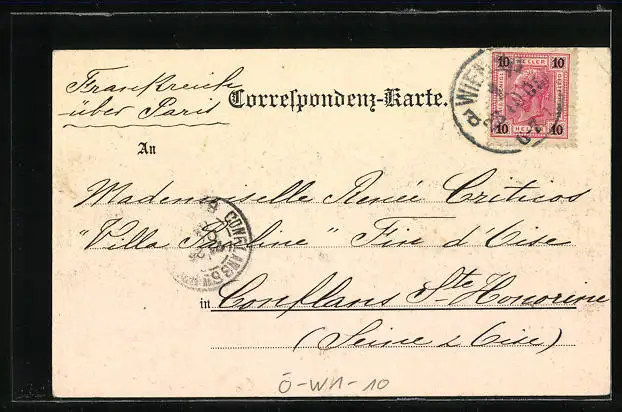 Frankreich
über Paris
Correspondenz-Karte.
10 HELLER 10
10 HELLER 10
WIEN
An
Mademoiselle Renée Criticos
"Villa Pauline" Fin d'Oise
CONFLANS
in Conflans Ste Honorine
(Seine & Oise)
Ö-WN-10